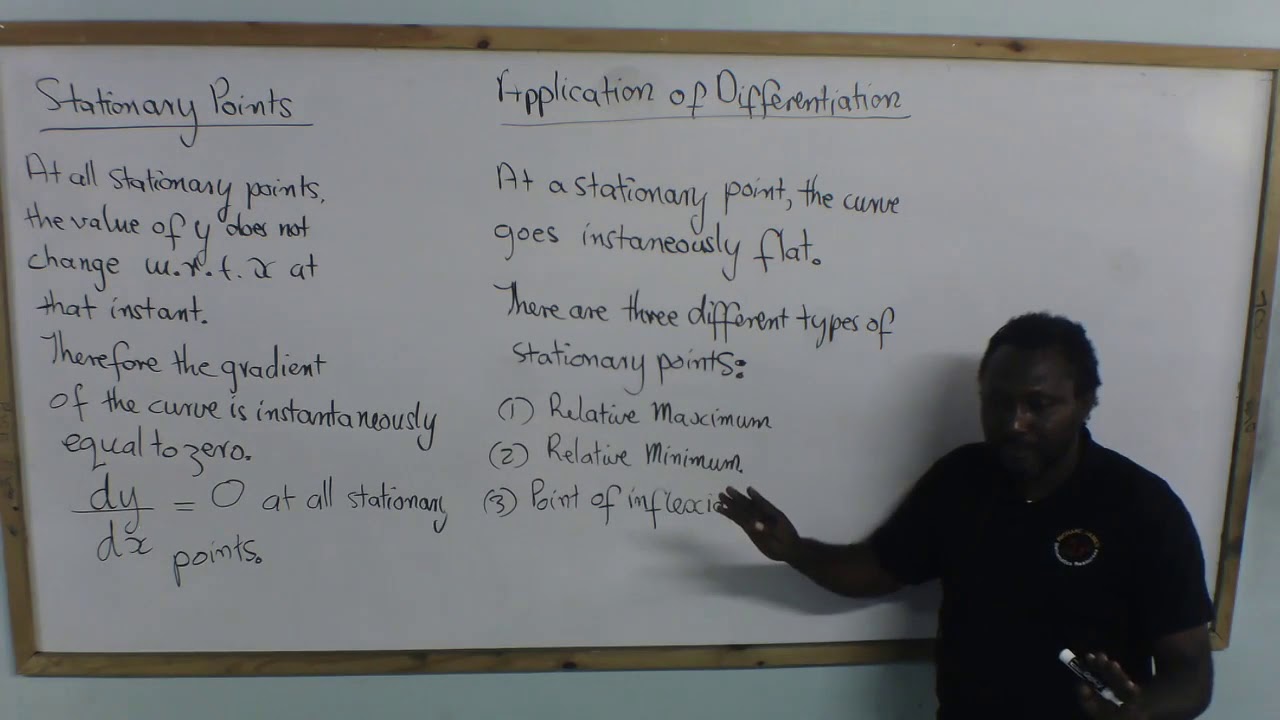 Stationary Points
At all stationary points,
the value of y does not
change w.r.t. x at
that instant.
Therefore the gradient
of the curve is instantaneously
equal to zero.
dy/dx = 0 at all stationary
points.
Application of Differentiation
At a stationary point, the curve
goes instaneously flat.
There are three different types of
stationary points:
(1) Relative Maximum
(2) Relative Minimum.
(3) Point of